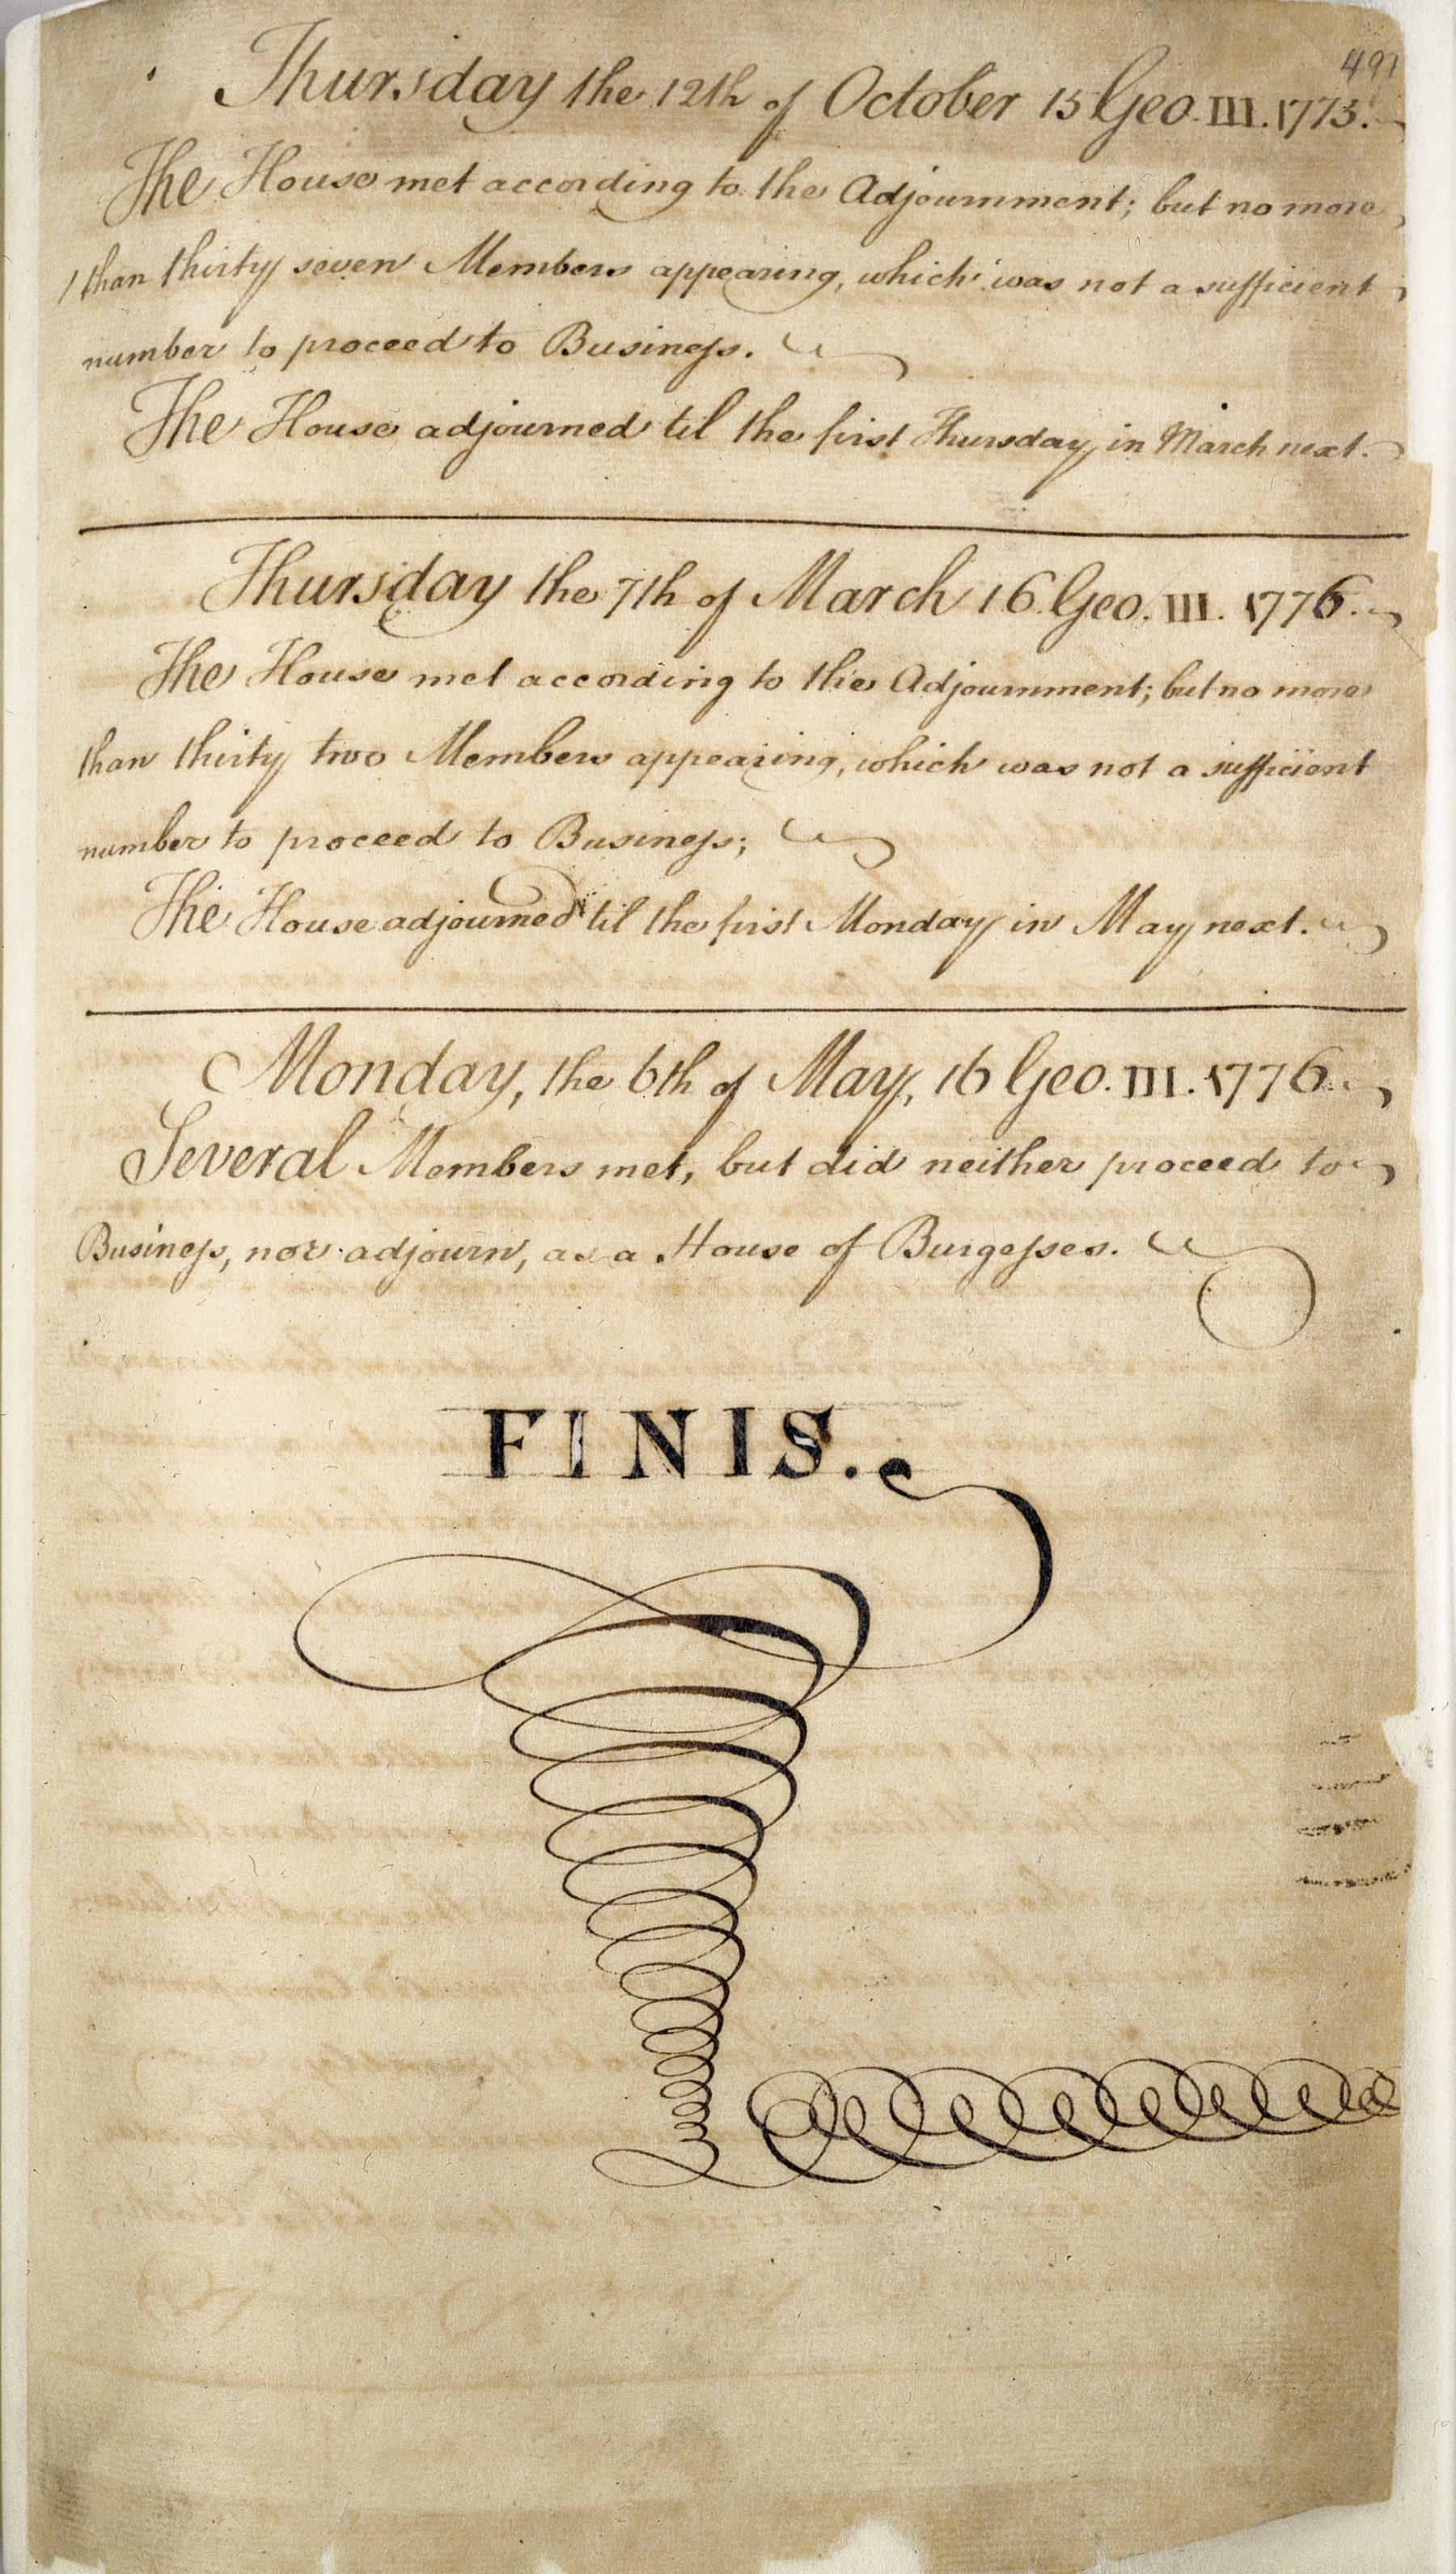 491
Thursday the 12th of October 15 Geo. III. 1775.
The House met according to the Adjournment; but no more
than thirty seven Members appearing, which was not a sufficient
number to proceed to Busineſs.
The House adjourned til the first Thursday in March next.
Thursday the 7th of March 16 Geo. III. 1776.
The House met according to the Adjournment; but no more
than thirty two Members appearing, which was not a sufficient
number to proceed to Busineſs;
The House adjourned til the first Monday in May next.
Monday, the 6th of May, 16 Geo. III. 1776.
Several Members met, but did neither proceed to
Busineſs, nor adjourn, as a House of Burgeſses.
FINIS.